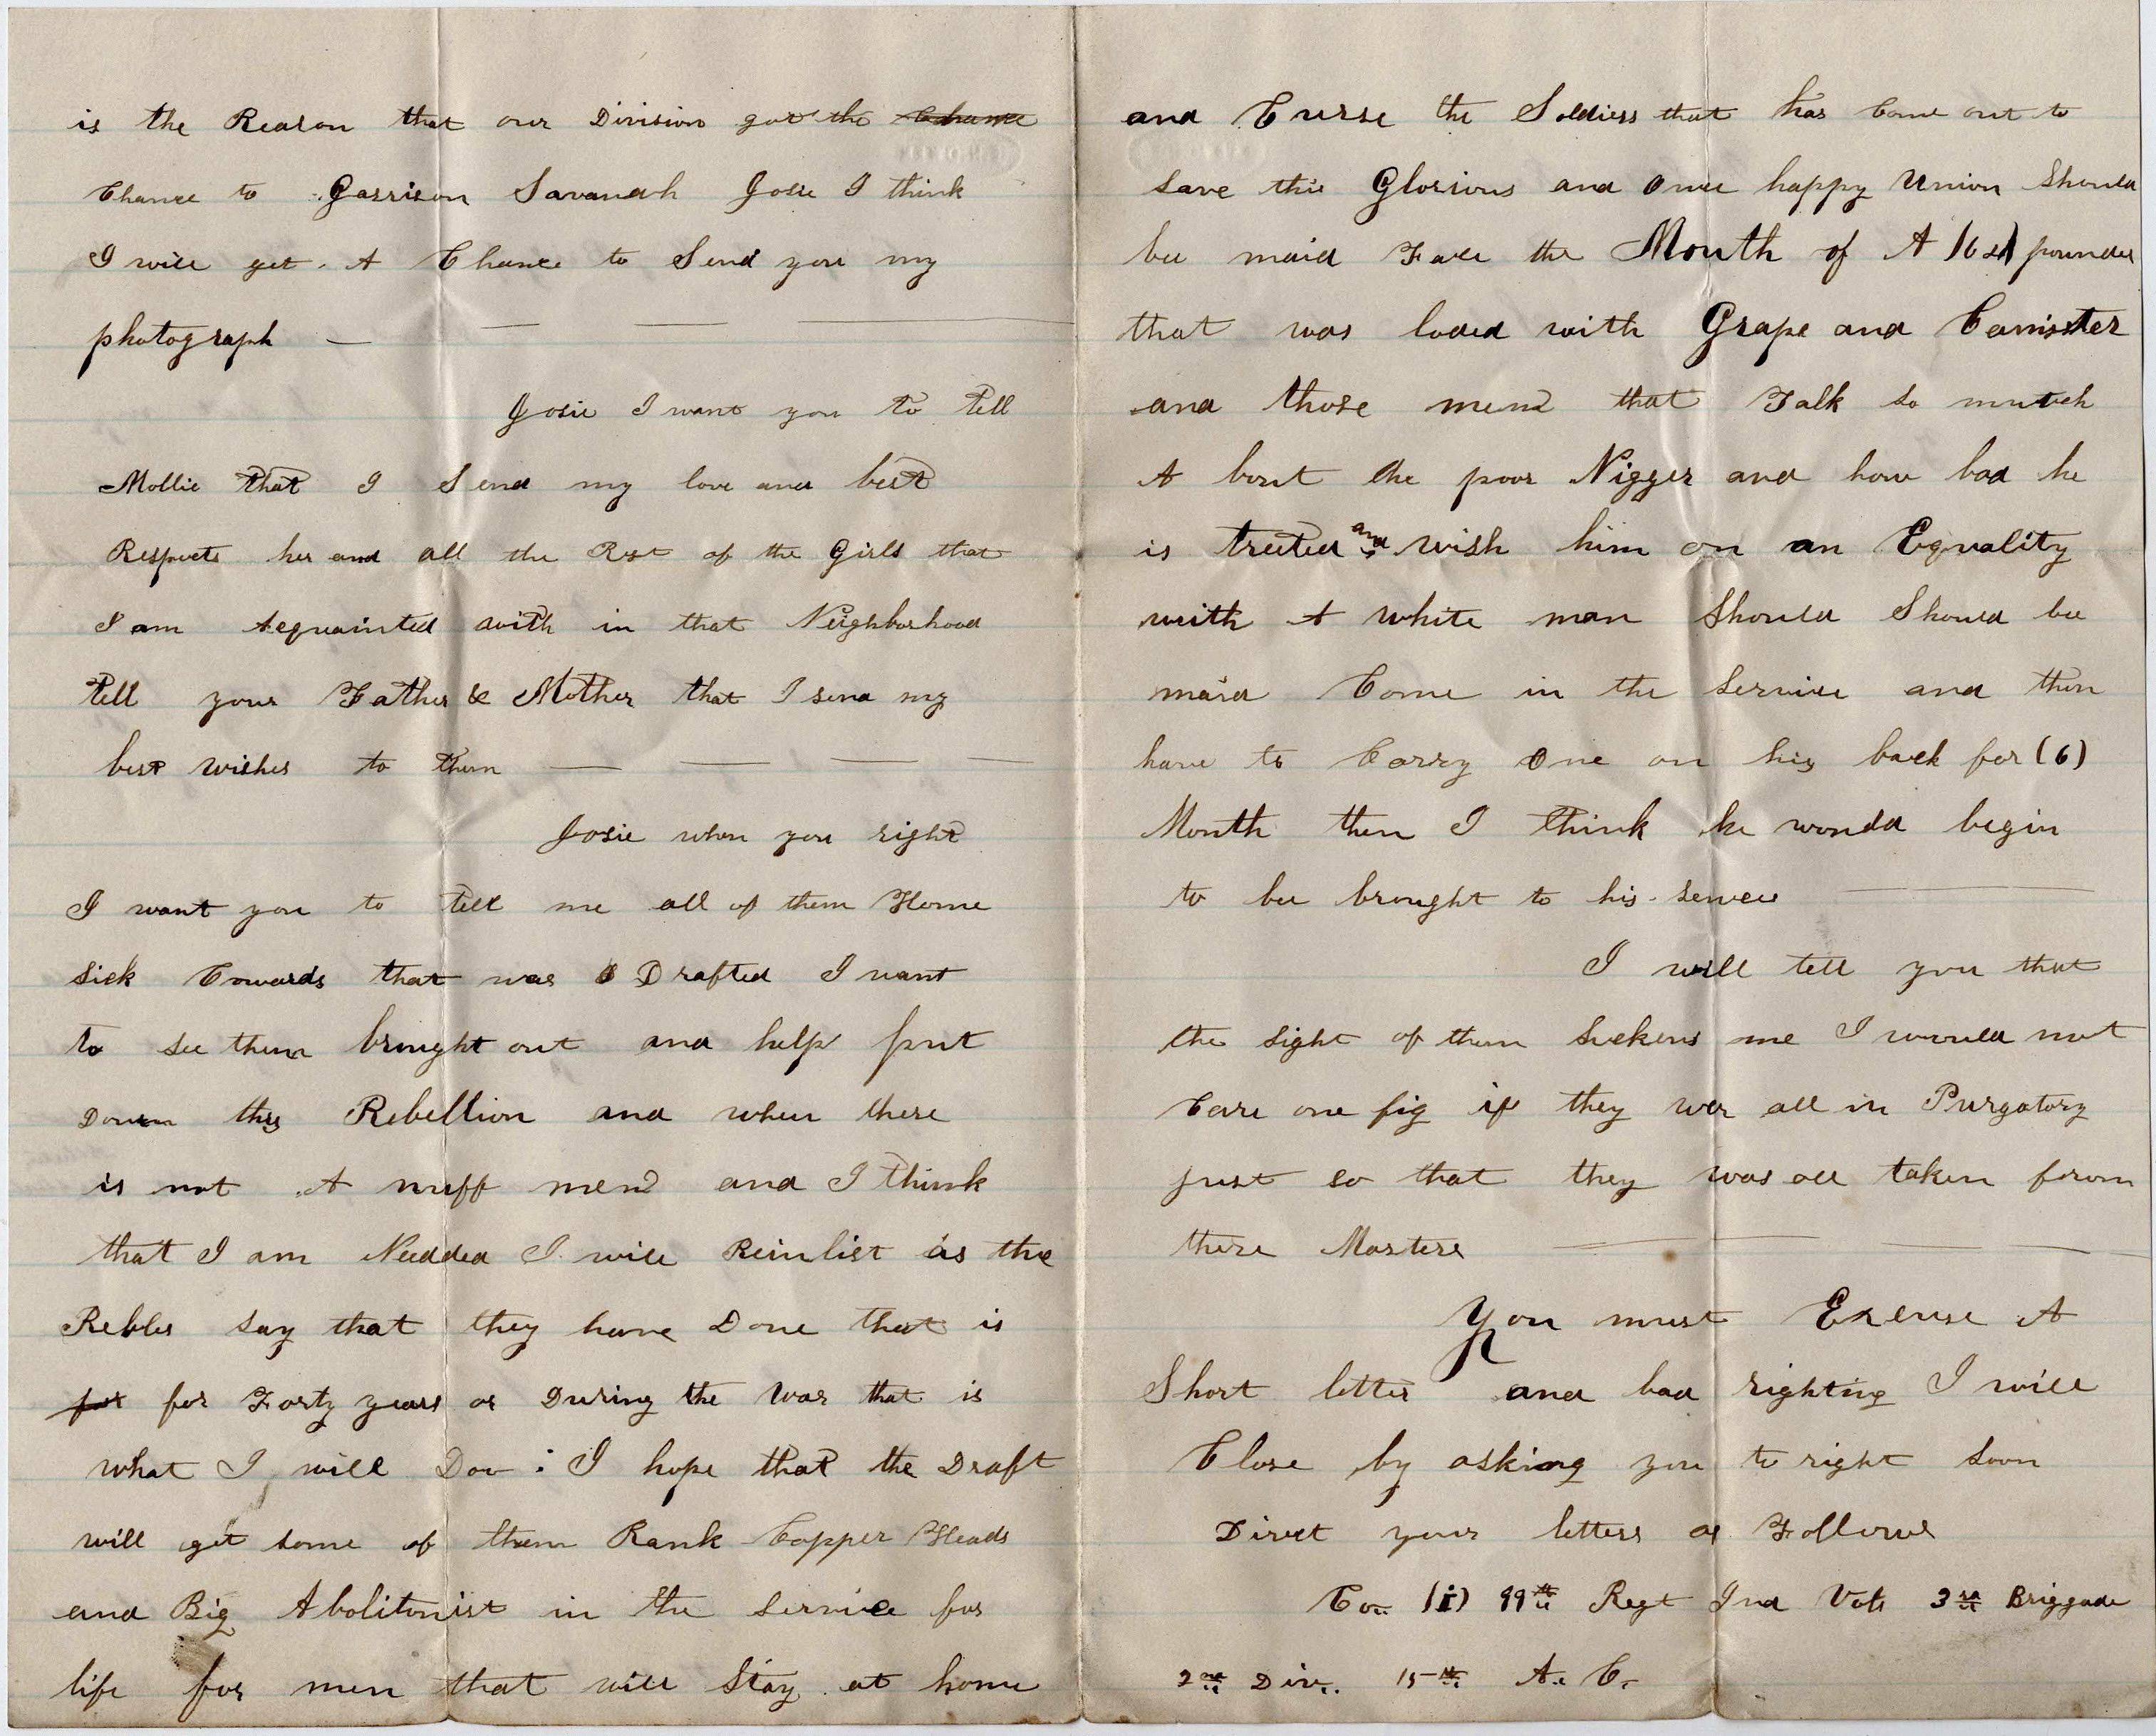 is the Reason that our Division got the Chance
Chance to Garrison Savanah Josie I think
I will get A Chance to Send you my
photograph —
Josie I want you to tell
Mollie that I Send my love and best
Respects her and all the Rest of the Girls that
I am Acquainted with in that Neighborhood
tell your Father & Mother that I send my
best wishes to them —
Josie when you right
I want you to tell me all of them Home
sick Cowards that was Drafted I want
to see them brought out and help put
Down this Rebellion and when there
is not A nuff mend and I think
that I am Needded I will Reinlist as the
Rebles say that they have Done that is
for for Forty years or During the War that is
what I will Doo : I hope that the Draft
will get some of them Rank Copper Heads
and Big Abolitonist in the service for
life for men that will Stay at home
and Curse the Soldiers that has Come out to
save this Glorious and Once happy Union Should
be maid Face the Mouth of A 64 pounder
that was loded with Grape and Cannister
and those mend that Talk so mutch
A bout the poor Nigger and how bad he
is treeted and wish him on an Equality
with A white man Should Should be
maid Come in the service and then
have to Carry One on his back for (6)
Month then I think he would begin
to be brought to his sences
I will tell you that
the sight of them sickens me I would not
Care one fig if they wer all in Purgatory
just so that they was all taken from
there Masters
You must Excuse A
Short letter and bad righting I will
Close by asking you to right soon
Direct your letters as Follows
Co. (i) 99th Regt Ind Vols 3rd Briggade
2nd Div. 15th A. C.